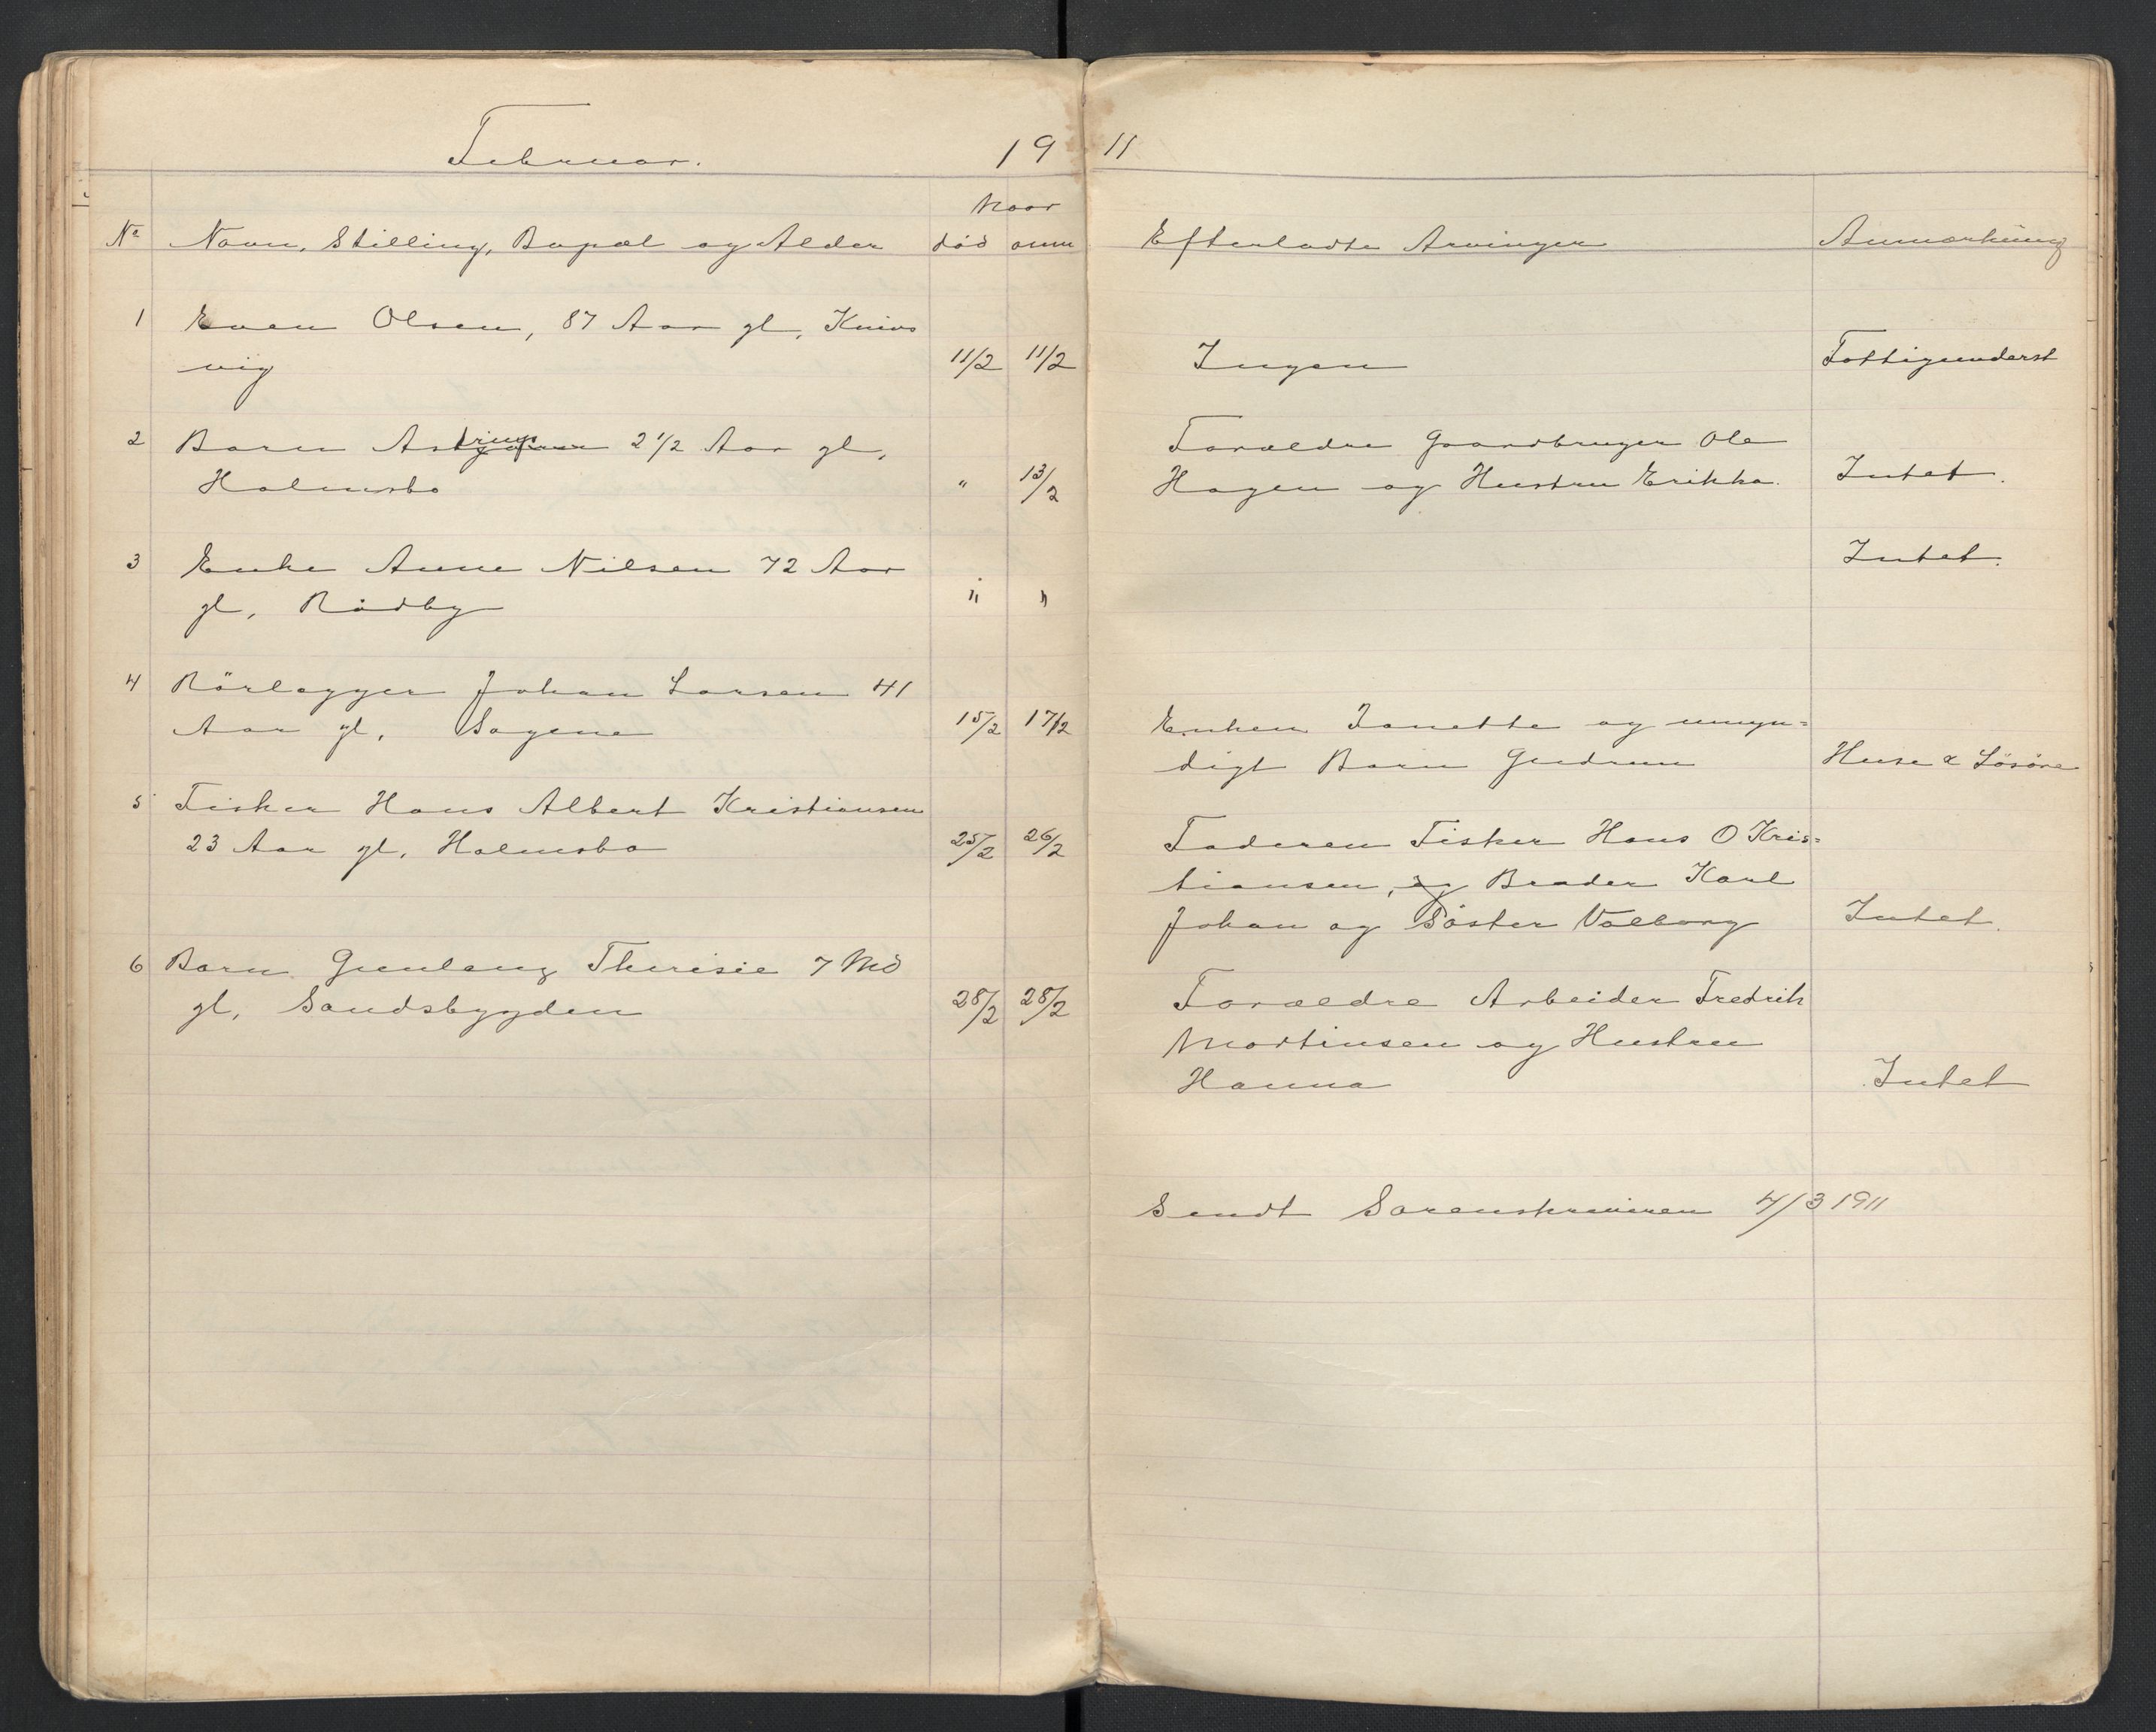 Februar. 19 11
Naar
No Navn, Stilling, Bopæl og Alder død anm Efterladte Arvinger Anmærkning
1 Even Olsen, 87 Aar gl, Knivs
vig 11/2 11/2 Ingen Fattigunderst
2 Barn Astrup 2 1/2 Aar gl, Forældre Gaardbruger Ole
Holmsbo " 13/2 Hagen og Hustru Erikka. Intet.
3 Enke Anne Nilsen 72 Aar Intet.
gl, Rødby " "
4 Rörlægger Johan Larsen 41
Aar gl, Sagene 15/2 17/2 Enken Janette og umyn=
digt Barn Gudrun Huse & Lösöre
5 Fisker Hans Albert Kristiansen
23 Aar gl, Holmsbo 25/2 26/2 Faderen Fisker Hans O Kris=
tiansen, og Broder Karl
Johan og Söster Valborg Intet.
6 Barn Gunlaug Therisie 7 Md
gl, Sandsbygden 28/2 28/2 Forældre Arbeider Fredrik
Martinsen og Hustru
Hanna Intet
Sendt Sorenskriveren 4/3 1911